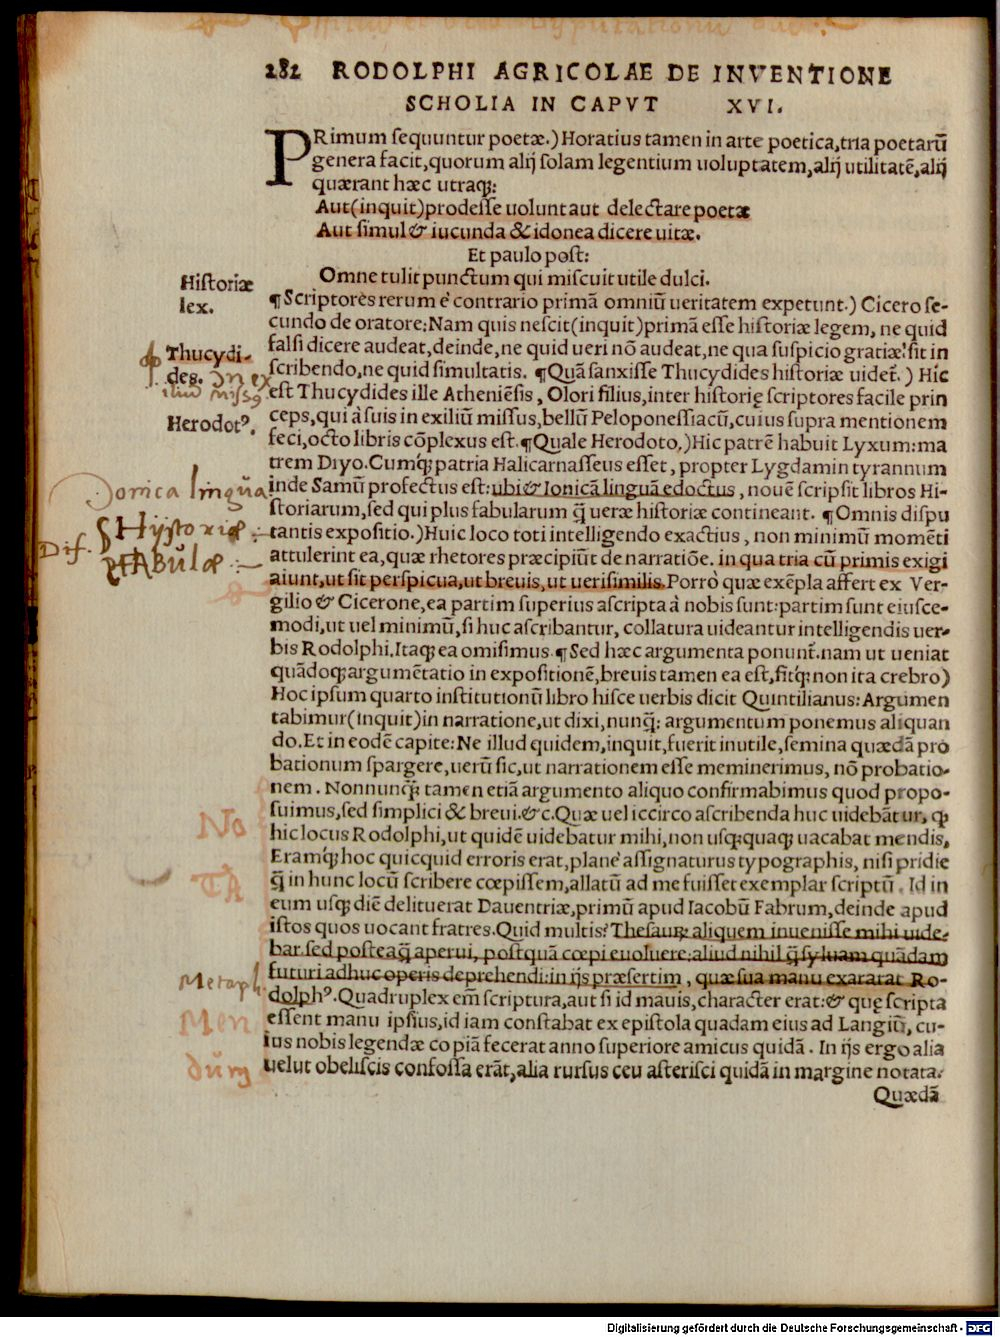 282 RODOLPHI AGRICOLAE DE INVENTIONE
SCHOLIA IN CAPVT XVI.
PRimum sequuntur poetæ.) Horatius tamen in arte poetica, tria poetarũ
genera facit, quorum alij solam legentium uoluptatem, alij utilitatẽ, alij
quærant hæc utraq;:
Aut (inquit) prodesse uolunt aut delectare poetæ
Aut simul & iucunda & idonea dicere uitæ.
Et paulo post:
Omne tulit punctum qui miscuit utile dulci.
Historiæ
lex.
¶ Scriptores rerum è contrario primã omniũ ueritatem expetunt.) Cicero se-
cundo de oratore: Nam quis nescit (inquit) primã esse historiæ legem, ne quid
falsi dicere audeat, deinde, ne quid ueri nõ audeat, ne qua suspicio gratiæ sit in
Thucydi-
des.
scribendo, ne quid simultatis. ¶ Quã sanxisse Thucydides historiæ uidet̃.) Hic
est Thucydides ille Atheniẽsis, Olori filius, inter historię scriptores facile prin
Herodotꝰ.
ceps, qui à suis in exiliũ missus, bellũ Peloponessiacũ, cuius supra mentionem
feci, octo libris cõplexus est. ¶ Quale Herodoto.) Hic patrẽ habuit Lyxum: ma
trem Dryo. Cumq́; patria Halicarnasseus esset, propter Lygdamin tyrannum
Jonica lingũa
inde Samũ profectus est: ubi & Ionicã linguã edoctus, nouẽ scripsit libros Hi-
storiarum, sed qui plus fabularum q̃ ueræ historiæ contineant. ¶ Omnis dispu
Dif. Hijstoriæ
FABŨLÆ
tantis expositio.) Huic loco toti intelligendo exactius, non minimũ momẽti
attulerint ea, quæ rhetores præcipiũt de narratiõe. in qua tria cũ primis exigi
aiunt, ut sit perspicua, ut breuis, ut uerisimilis. Porrò quæ exẽpla affert ex Ver-
gilio & Cicerone, ea partim superius ascripta à nobis sunt: partim sunt eiusce-
modi, ut uel minimũ, si huc ascribantur, collatura uideantur intelligendis uer-
bis Rodolphi. Itaq; ea omisimus. ¶ Sed hæc argumenta ponunt̃. nam ut ueniat
quãdoq; argumẽtatio in expositionẽ, breuis tamen ea est, fitq́; non ita crebro)
Hoc ipsum quarto institutionũ libro hisce uerbis dicit Quintilianus: Argumen
tabimur (inquit) in narratione, ut dixi, nunq̃; argumentum ponemus aliquan
do. Et in eodẽ capite: Ne illud quidem, inquit, fuerit inutile, semina quædã pro
bationum spargere, uerũ sic, ut narrationem esse meminerimus, nõ probatio-
nem. Nonnunq̃; tamen etiã argumento aliquo confirmabimus quod propo-
suimus, sed simplici & breui. &c. Quæ uel iccirco ascribenda huc uidebãtur, ꝙ
No
TA
hic locus Rodolphi, ut quidẽ uidebatur mihi, non usq; quaq; uacabat mendis,
Eramq́; hoc quicquid erroris erat, planè assignaturus typographis, nisi pridie
q̃ in hunc locũ scribere cœpissem, allatũ ad me fuisset exemplar scriptũ. Id in
eum usq; diẽ delituerat Dauentriæ, primũ apud Iacobũ Fabrum, deinde apud
istos quos uocant fratres. Quid multis? Thesaurũ aliquem inuenisse mihi uide-
bar. sed posteaq̃ aperui, postquã cœpi euoluere: aliud nihil q̃ syluam quãdam
Metaph.
futuri adhuc operis deprehendi: in ijs præsertim, quæ sua manu exararat Ro-
dolphꝰ. Quadruplex em̃ scriptura, aut si id mauis, character erat: & quę scripta
Men
dũm
essent manu ipsius, id iam constabat ex epistola quadam eius ad Langiũ, cu-
ius nobis legendæ copiã fecerat anno superiore amicus quidã. In ijs ergo alia
uelut obeliscis confossa erãt, alia rursus ceu asterisci quidã in margine notata:
Quædã
Digitalisierung gefördert durch die Deutsche Forschungsgemeinschaft - DFG